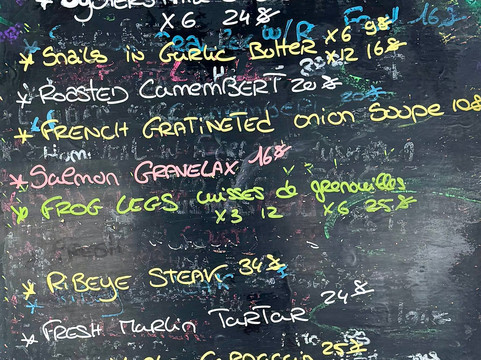 X6 24$
* Snails in Garlic Butter X6 9$
X12 16$
* Roasted Camembert 20$
* French Gratineted onion Soupe 10$
* Salmon Gravelax 16$
* Frog Legs cuisses de grenouilles
X3 12 X6 25$
* Ribeye Steak 34$
* Fresh Marlin Tartar 24$
25$